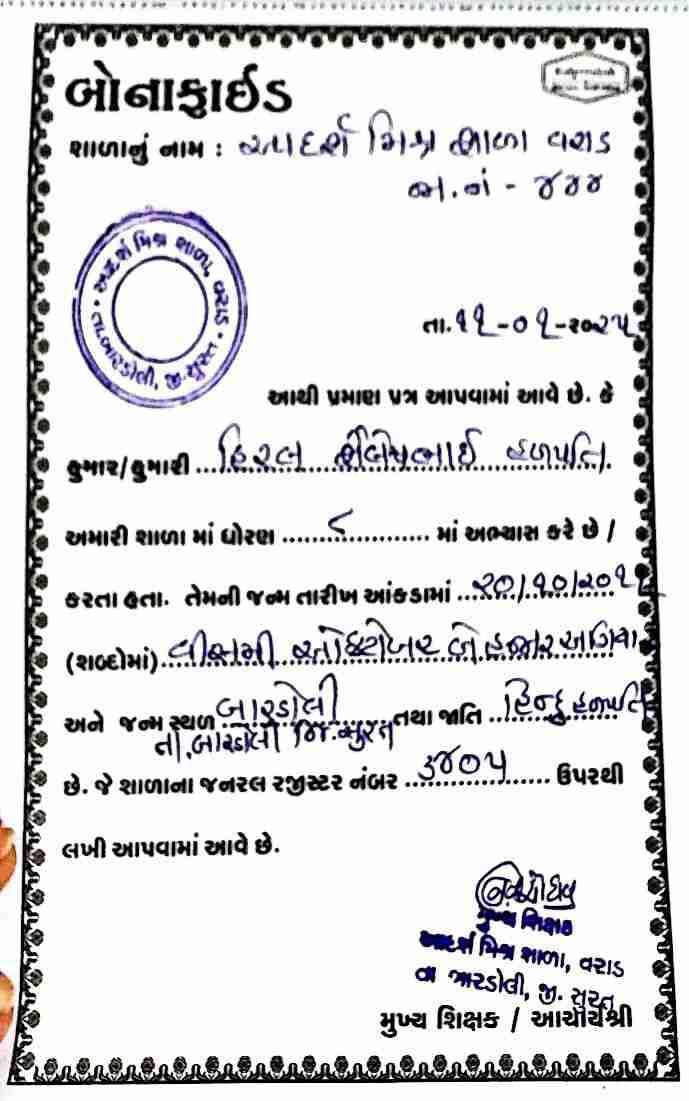 બોનાફાઈડ
શાળાનું નામ : આદર્શ મિશ્ર શાળા વરાડ
જા.નં - ૪૪૪
આદર્શ મિશ્ર શાળા, વરાડ
તા.બારડોલી, જી.સુરત
તા.૧૧-૦૧-૨૦૨૫
આથી પ્રમાણ પત્ર આપવામાં આવે છે. કે
કુમાર/કુમારી ...હિરલ શૈલેષભાઈ હળપતિ.
અમારી શાળા માં ધોરણ ......૮...... માં અભ્યાસ કરે છે /
કરતા હતા. તેમની જન્મ તારીખ આંકડામાં ..૨૦/૧૦/૨૦૧૧
(શબ્દોમાં)..વીસમી ઓક્ટોબર બે હજાર અગિયા
અને જન્મ સ્થળ બારડોલી તથા જાતિ ..હિન્દુ હળપતિ
તા.બારડોલી જિ.સુરત
છે. જે શાળાના જનરલ રજીસ્ટર નંબર ..૩૪૦૫...... ઉપરથી
લખી આપવામાં આવે છે.
મુખ્ય શિક્ષક
આદર્શ મિશ્ર શાળા, વરાડ
તા બારડોલી, જી. સુરત
મુખ્ય શિક્ષક / આચાર્યશ્રી